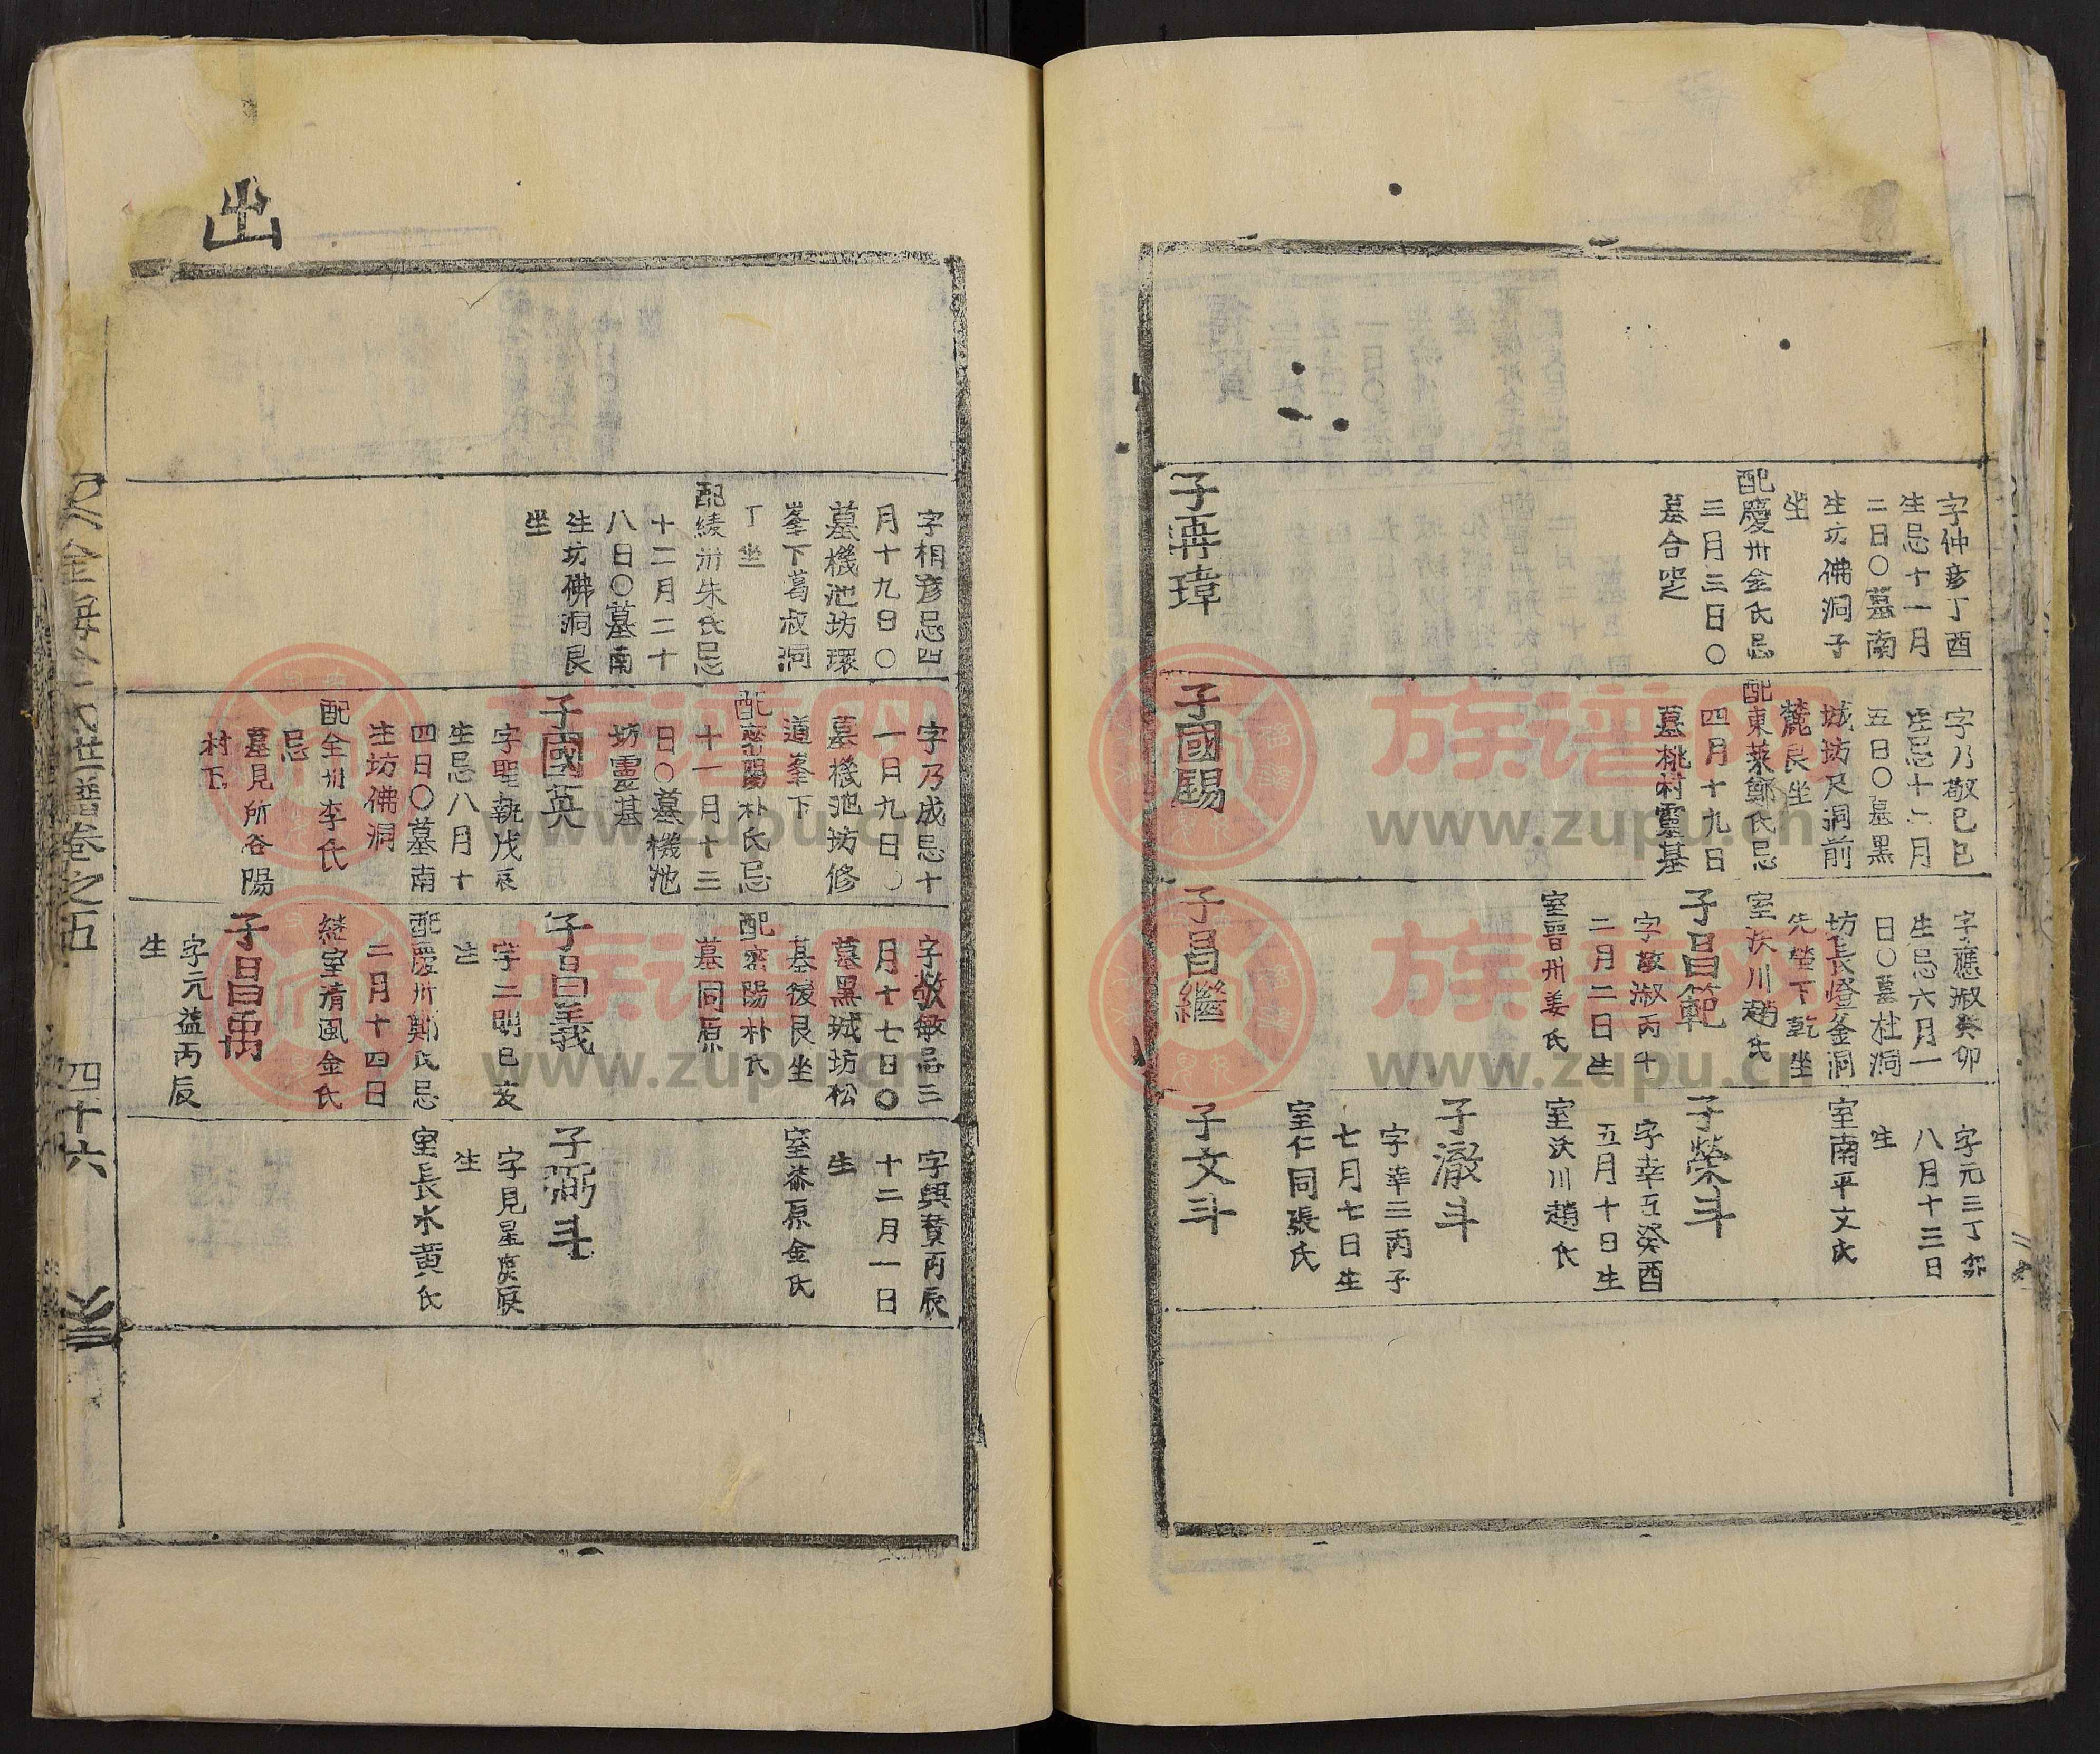 字仲彦丁酉
生忌十一月
二日〇墓南
生坊佛洞子
坐
配慶州金氏忌
三月三日〇
墓合窆
子再瑋
字乃敬己巳
生忌十二月
五日〇墓黑
城坊尺洞前
麓艮坐
配東萊鄭氏忌
四月十九日
墓桃村靈基
子國賜
字應淑癸卯
生忌六月一
日〇墓杜洞
坊長燈釜洞
先塋下乾坐
室沃川趙氏
子昌範
字敬淑丙午
二月二日生
室晋州姜氏
子昌繼
字元三丁卯
八月十三日
生
室南平文氏
子榮斗
字幸五癸酉
五月十日生
室沃川趙氏
子澈斗
字幸三丙子
七月七日生
室仁同張氏
子文斗
出
字相彦忌四
月十九日〇
墓機池坊環
峯下葛叔洞
丁坐
配綾州朱氏忌
十二月二十
八日〇墓南
生坊佛洞艮
坐
字乃成忌十
一月九日〇
墓機池坊修
道峯下
配密陽朴氏忌
十一月十三
日〇墓機池
坊靈基
子國英
字聖執戊辰
生忌八月十
四日〇墓南
生坊佛洞
配全州李氏
忌
墓見所谷陽
村下
字敬敏忌三
月十七日〇
墓黑城坊松
基後艮坐
配密陽朴氏
墓同原
子昌義
字二明己亥
生
配慶州鄭氏忌
二月十四日
継室清風金氏
子昌禹
字元益丙辰
生
字興賛丙辰
十二月一日
生
室泰原金氏
子弼斗
字見星庚辰
生
室長水黄氏
世譜卷之五
四十六
族谱网
www.zupu.cn
族谱网
www.zupu.cn
族谱网
www.zupu.cn
族谱网
www.zupu.cn